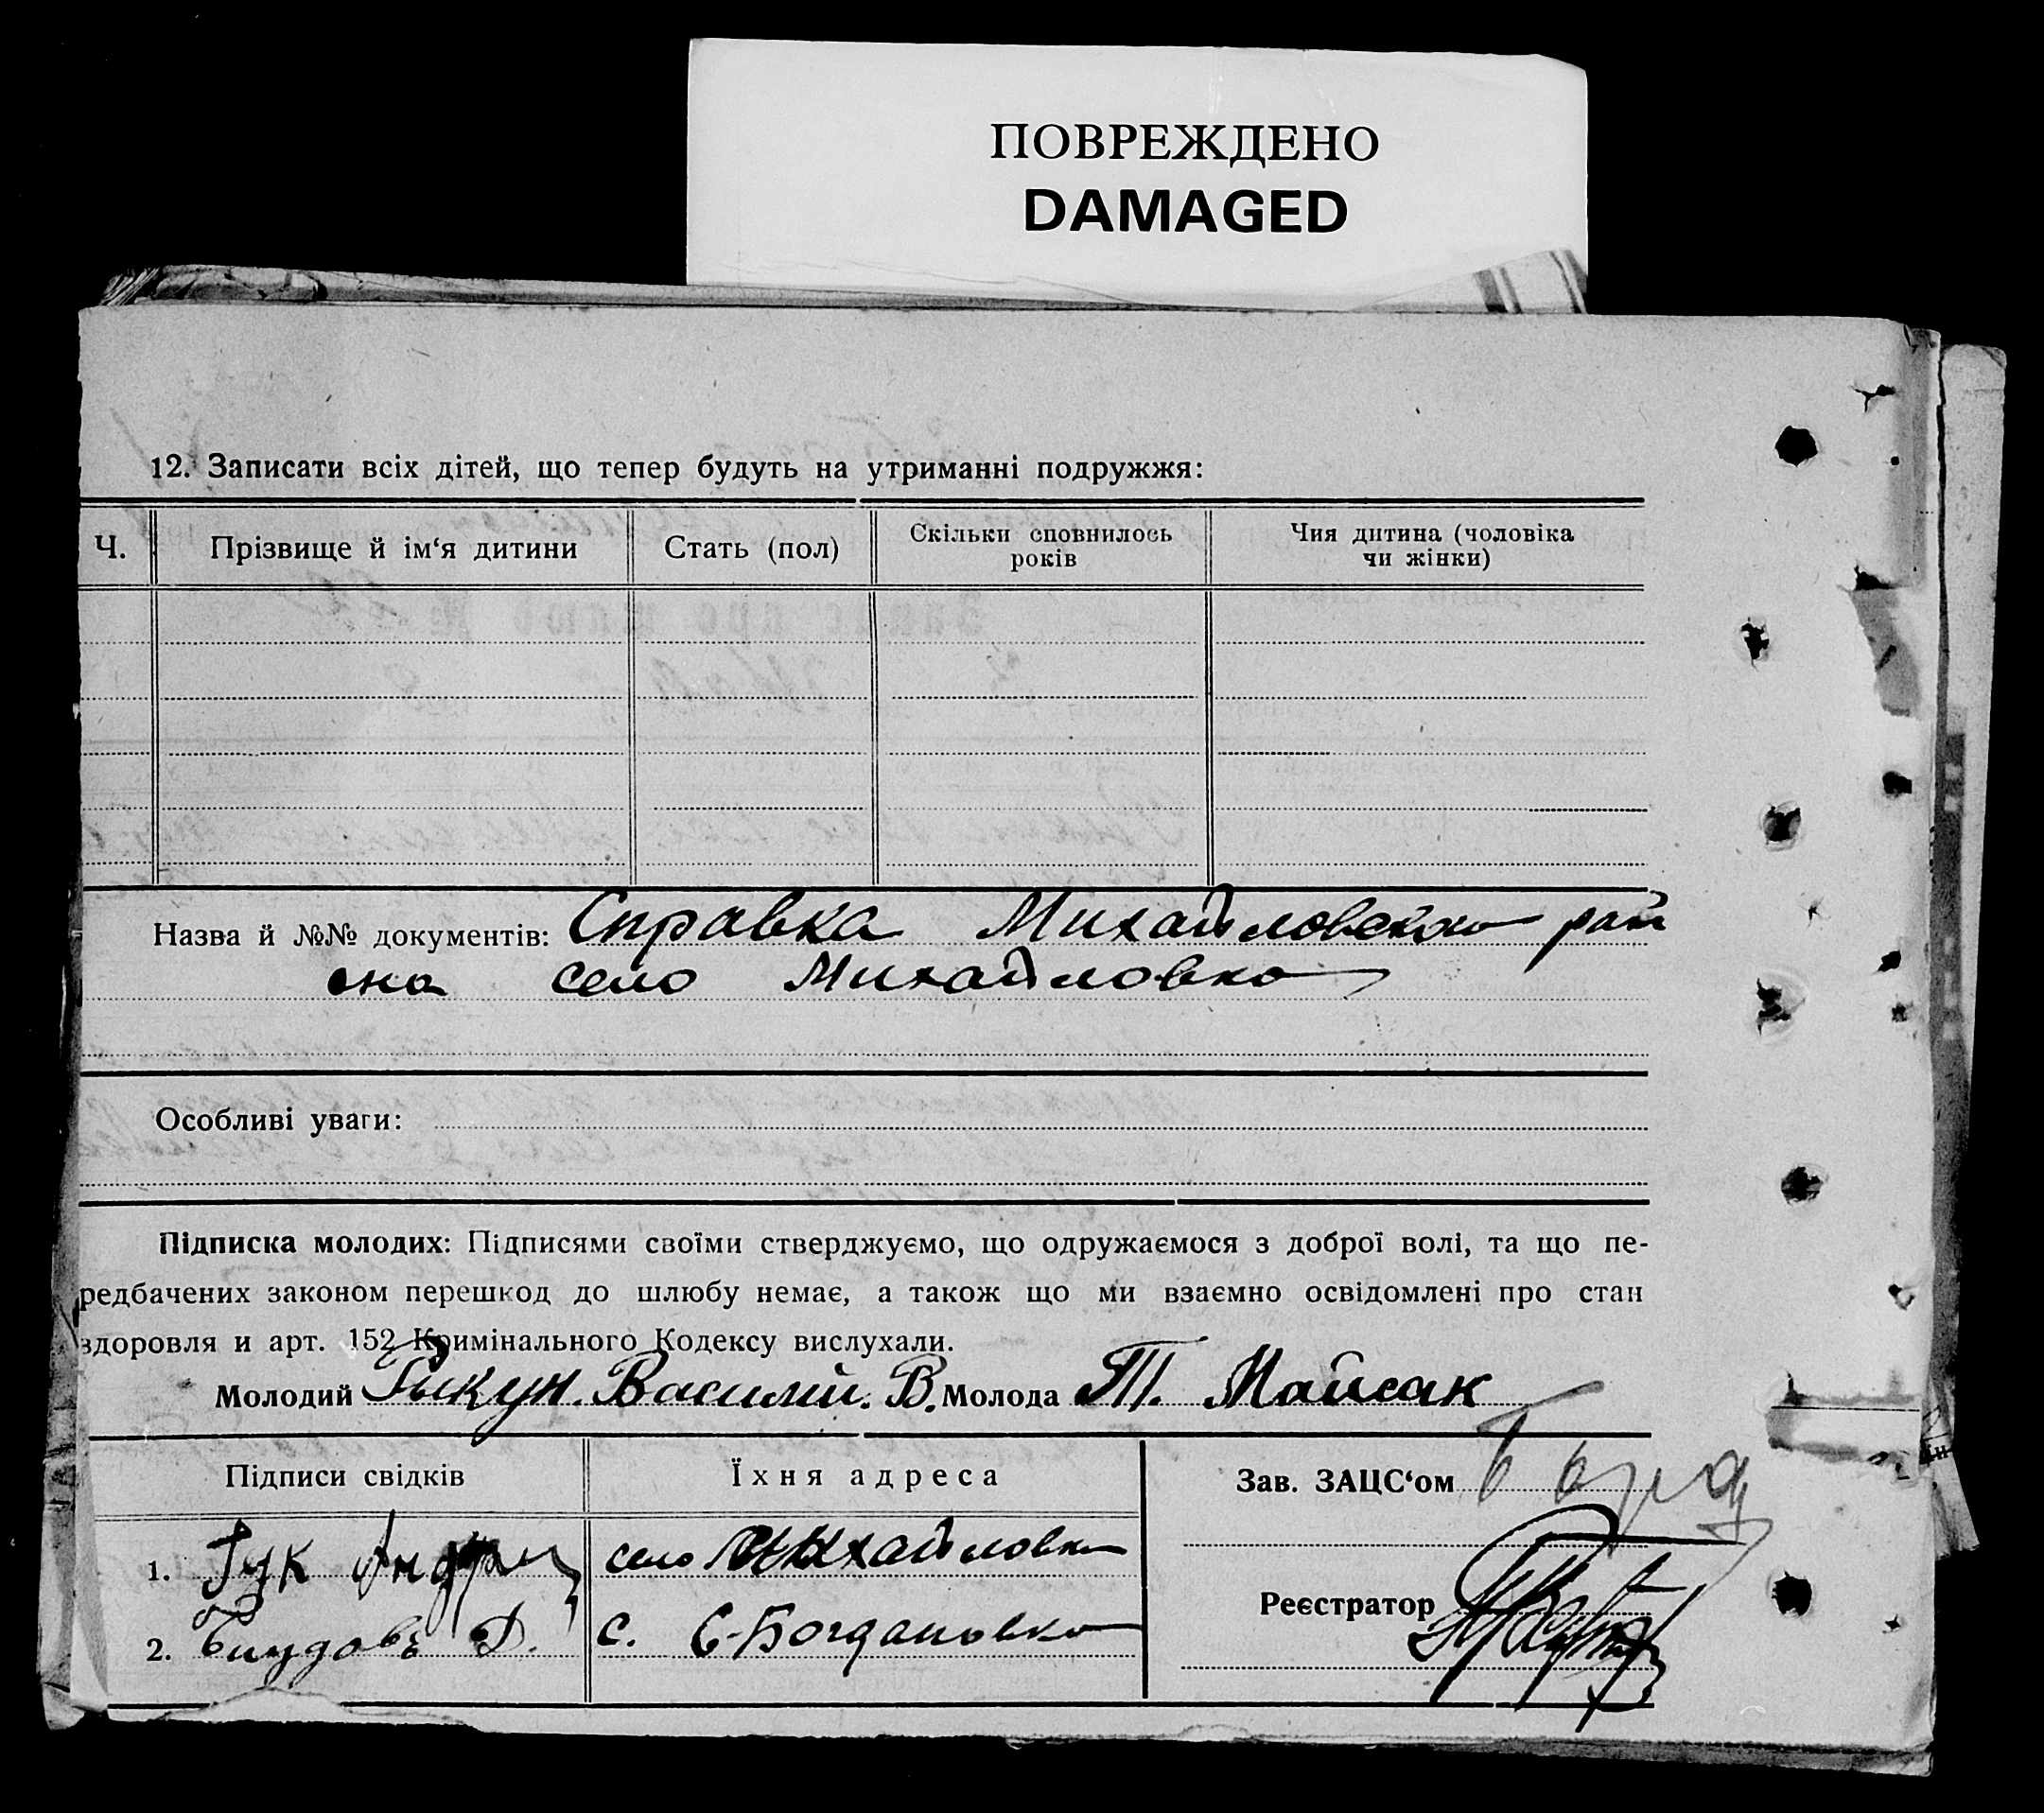 ПОВРЕЖДЕНО
DAMAGED
12. Записати всіх дітей, що тепер будуть на утриманні подружжя:
Ч. Прізвище й ім‘я дитини Стать (пол) Скільки сповнилось років Чия дитина (чоловіка чи жінки)
Назва й №№ документів: Справка Михайловского рай
она село Михайловка
Особливі уваги:
Підписка молодих: Підписями своїми стверджуємо, що одружаємося з доброї волі, та що пе-
редбачених законом перешкод до шлюбу немає, а також що ми взаємно освідомлені про стан
здоровля и арт. 152 Кримінального Кодексу вислухали.
Молодий Рикун. Василий. В. Молода Т. Майсак
Підписи свідків Їхня адреса Зав. ЗАЦС‘ом
1. Гук Андрій село Михайловка
Реєстратор
2. Д. с. С-Богдановка